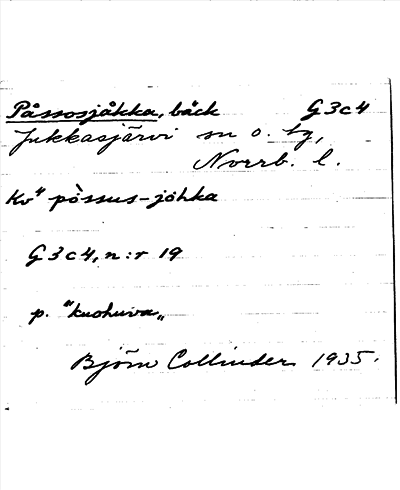 Påssosjåkka, bäck G3c4
Jukkasjärvi sn o. tg,
Norrb. l.
Kv" pòssus-johka
G3c4, n:r 19
p. "kuohuva„
Björn Collinder 1935.